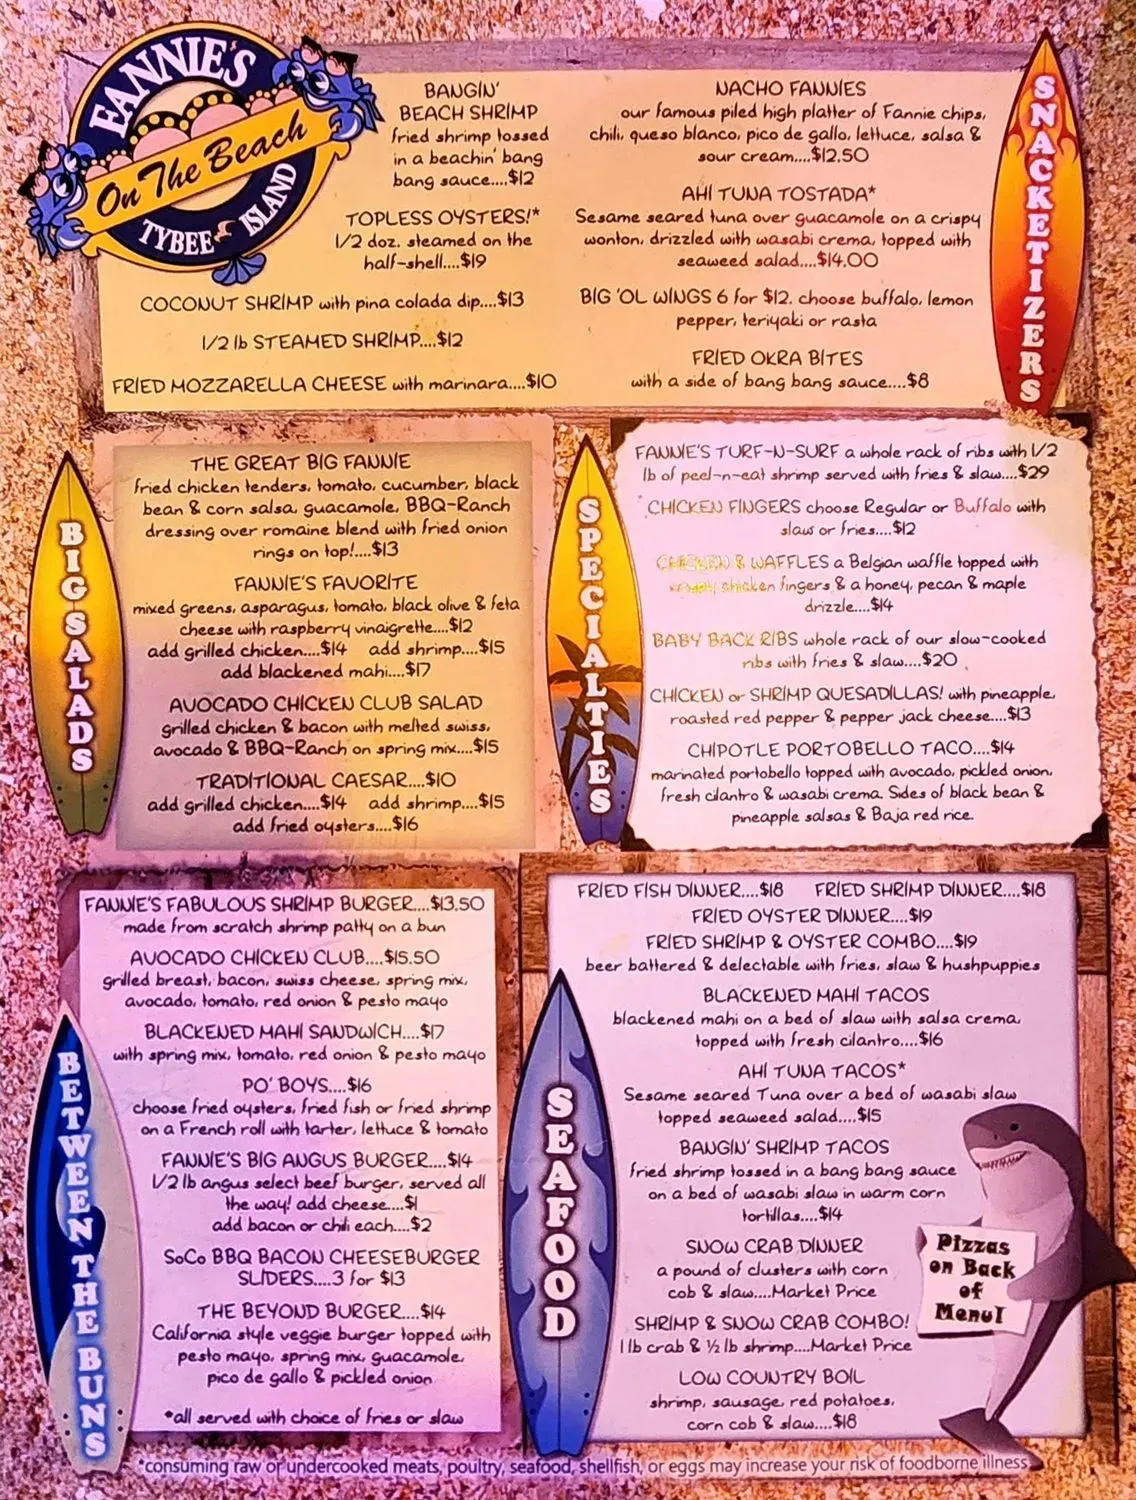 FANNIE'S
On The Beach
TYBEE ISLAND
BANGIN'
BEACH SHRIMP
fried shrimp tossed
in a beachin' bang
bang sauce....$12
TOPLESS OYSTERS!*
1/2 doz. steamed on the
half-shell....$19
COCONUT SHRIMP with pina colada dip....$13
1/2 lb STEAMED SHRIMP....$12
FRIED MOZZARELLA CHEESE with marinara....$10
NACHO FANNIES
our famous piled high platter of Fannie chips,
chili, queso blanco, pico de gallo, lettuce, salsa &
sour cream....$12.50
AHI TUNA TOSTADA*
Sesame seared tuna over guacamole on a crispy
wonton, drizzled with wasabi crema, topped with
seaweed salad....$14.00
BIG 'OL WINGS 6 for $12. choose buffalo, lemon
pepper, teriyaki or rasta
FRIED OKRA BITES
with a side of bang bang sauce....$8
SNACKETIZERS
BIG SALADS
THE GREAT BIG FANNIE
fried chicken tenders, tomato, cucumber, black
bean & corn salsa, guacamole, BBQ-Ranch
dressing over romaine blend with fried onion
rings on top!....$13
FANNIE'S FAVORITE
mixed greens, asparagus, tomato, black olive & feta
cheese with raspberry vinaigrette....$12
add grilled chicken....$14 add shrimp....$15
add blackened mahi....$17
AVOCADO CHICKEN CLUB SALAD
grilled chicken & bacon with melted swiss,
avocado & BBQ-Ranch on spring mix....$15
TRADITIONAL CAESAR....$10
add grilled chicken....$14 add shrimp....$15
add fried oysters....$16
SPECIALTIES
FANNIE'S TURF-N-SURF a whole rack of ribs with 1/2
lb of peel-n-eat shrimp served with fries & slaw....$29
CHICKEN FINGERS choose Regular or Buffalo with
slaw or fries....$12
CHICKEN & WAFFLES a Belgian waffle topped with
crispy chicken fingers & a honey, pecan & maple
drizzle....$14
BABY BACK RIBS whole rack of our slow-cooked
ribs with fries & slaw....$20
CHICKEN or SHRIMP QUESADILLAS! with pineapple,
roasted red pepper & pepper jack cheese....$13
CHIPOTLE PORTOBELLO TACO....$14
marinated portobello topped with avocado, pickled onion,
fresh cilantro & wasabi crema. Sides of black bean &
pineapple salsas & Baja red rice.
BETWEEN THE BUNS
FANNIE'S FABULOUS SHRIMP BURGER....$13.50
made from scratch shrimp patty on a bun
AVOCADO CHICKEN CLUB....$15.50
grilled breast, bacon, swiss cheese, spring mix,
avocado, tomato, red onion & pesto mayo
BLACKENED MAHI SANDWICH....$17
with spring mix, tomato, red onion & pesto mayo
PO' BOYS....$16
choose fried oysters, fried fish or fried shrimp
on a French roll with tarter, lettuce & tomato
FANNIE'S BIG ANGUS BURGER....$14
1/2 lb angus select beef burger, served all
the way! add cheese....$1
add bacon or chili each....$2
SoCo BBQ BACON CHEESEBURGER
SLIDERS....3 for $13
THE BEYOND BURGER....$14
California style veggie burger topped with
pesto mayo, spring mix, guacamole,
pico de gallo & pickled onion
*all served with choice of fries or slaw
SEAFOOD
FRIED FISH DINNER....$18 FRIED SHRIMP DINNER....$18
FRIED OYSTER DINNER....$19
FRIED SHRIMP & OYSTER COMBO....$19
beer battered & delectable with fries, slaw & hushpuppies
BLACKENED MAHI TACOS
blackened mahi on a bed of slaw with salsa crema,
topped with fresh cilantro....$16
AHI TUNA TACOS*
Sesame seared Tuna over a bed of wasabi slaw
topped seaweed salad....$15
BANGIN' SHRIMP TACOS
fried shrimp tossed in a bang bang sauce
on a bed of wasabi slaw in warm corn
tortillas....$14
SNOW CRAB DINNER
a pound of clusters with corn
cob & slaw....Market Price
SHRIMP & SNOW CRAB COMBO!
1 lb crab & ½ lb shrimp....Market Price
LOW COUNTRY BOIL
shrimp, sausage, red potatoes,
corn cob & slaw....$18
Pizzas
on Back
of
Menu!
*consuming raw or undercooked meats, poultry, seafood, shellfish, or eggs may increase your risk of foodborne illness